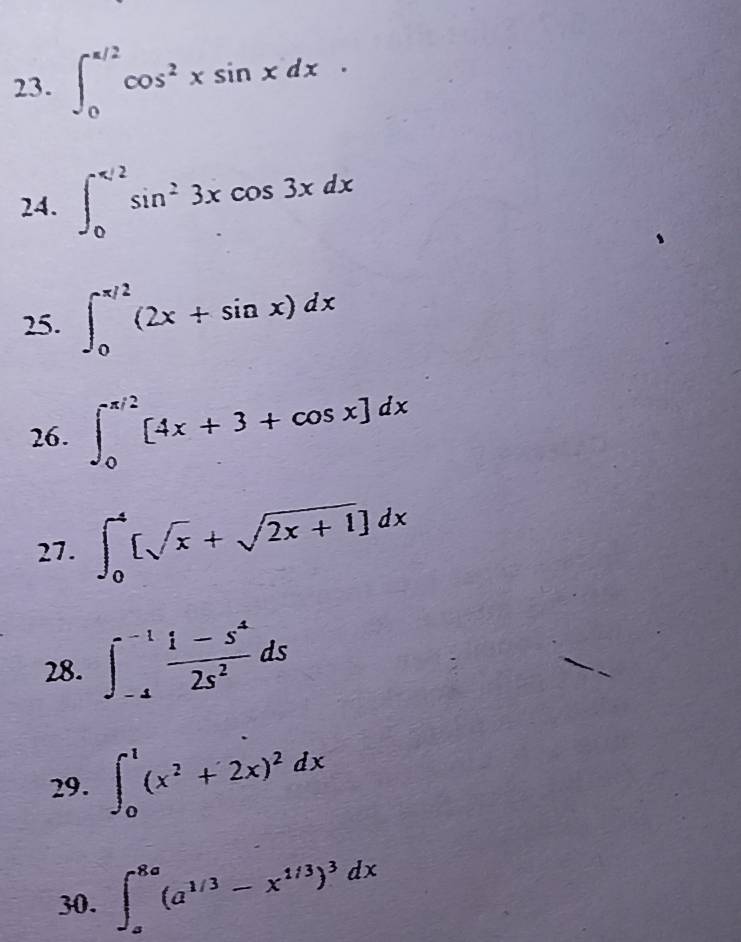 23. ∫₀^{π/2} cos² x sin x dx .
24. ∫₀^{π/2} sin² 3x cos 3x dx
25. ∫₀^{π/2} (2x + sin x) dx
26. ∫₀^{π/2} [4x + 3 + cos x] dx
27. ∫₀^{4} [√x + √(2x + 1)] dx
28. ∫_{-4}^{-1} (1 − s⁴)/(2s²) ds
29. ∫₀^{1} (x² + 2x)² dx
30. ∫_{a}^{8a} (a^{1/3} − x^{1/3})³ dx